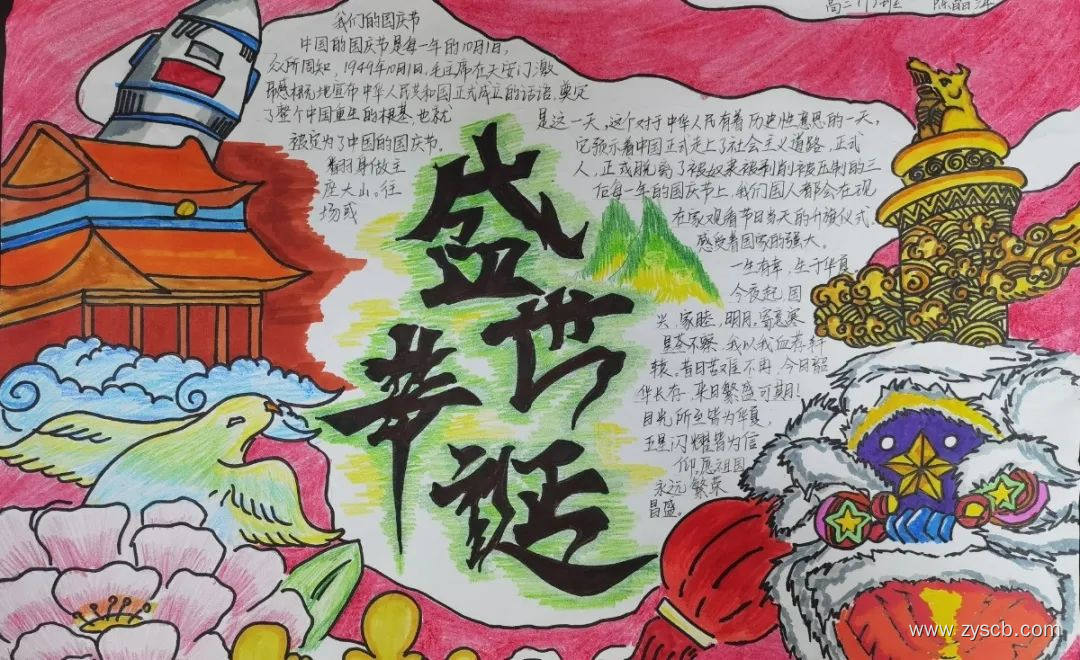 高二
我们的国庆节
中国的国庆节是每一年的10月1日，
众所周知，1949年10月1日，毛主席在天安门激
昂感慨地宣布中华人民共和国正式成立的话语，奠定
了整个中国重生的根基，也就
被定为了中国的国庆节。
翻身做主
座大山。往
场或
是这一天，这个对于中华人民有着历史性意思的一天，
它预示着中国正式走上了社会主义道路，正式
人，正式脱离了被奴隶被剥削被压制的三
每一年的国庆节上，我们国人都会在现
在家观看节目当天的升旗仪式，
感受着国家的强大。
一生有幸，生于华夏
今夜起，国
兴，家睦，明月，寄意寒
星荃不察，我以我血荐轩
辕，昔日苦难不再，今日韶
华长存，来日繁盛可期！
目光所至皆为华夏，
五星闪耀皆为信
仰，愿祖国
永远繁荣
昌盛。
盛世
華誕
www.zyscb.com